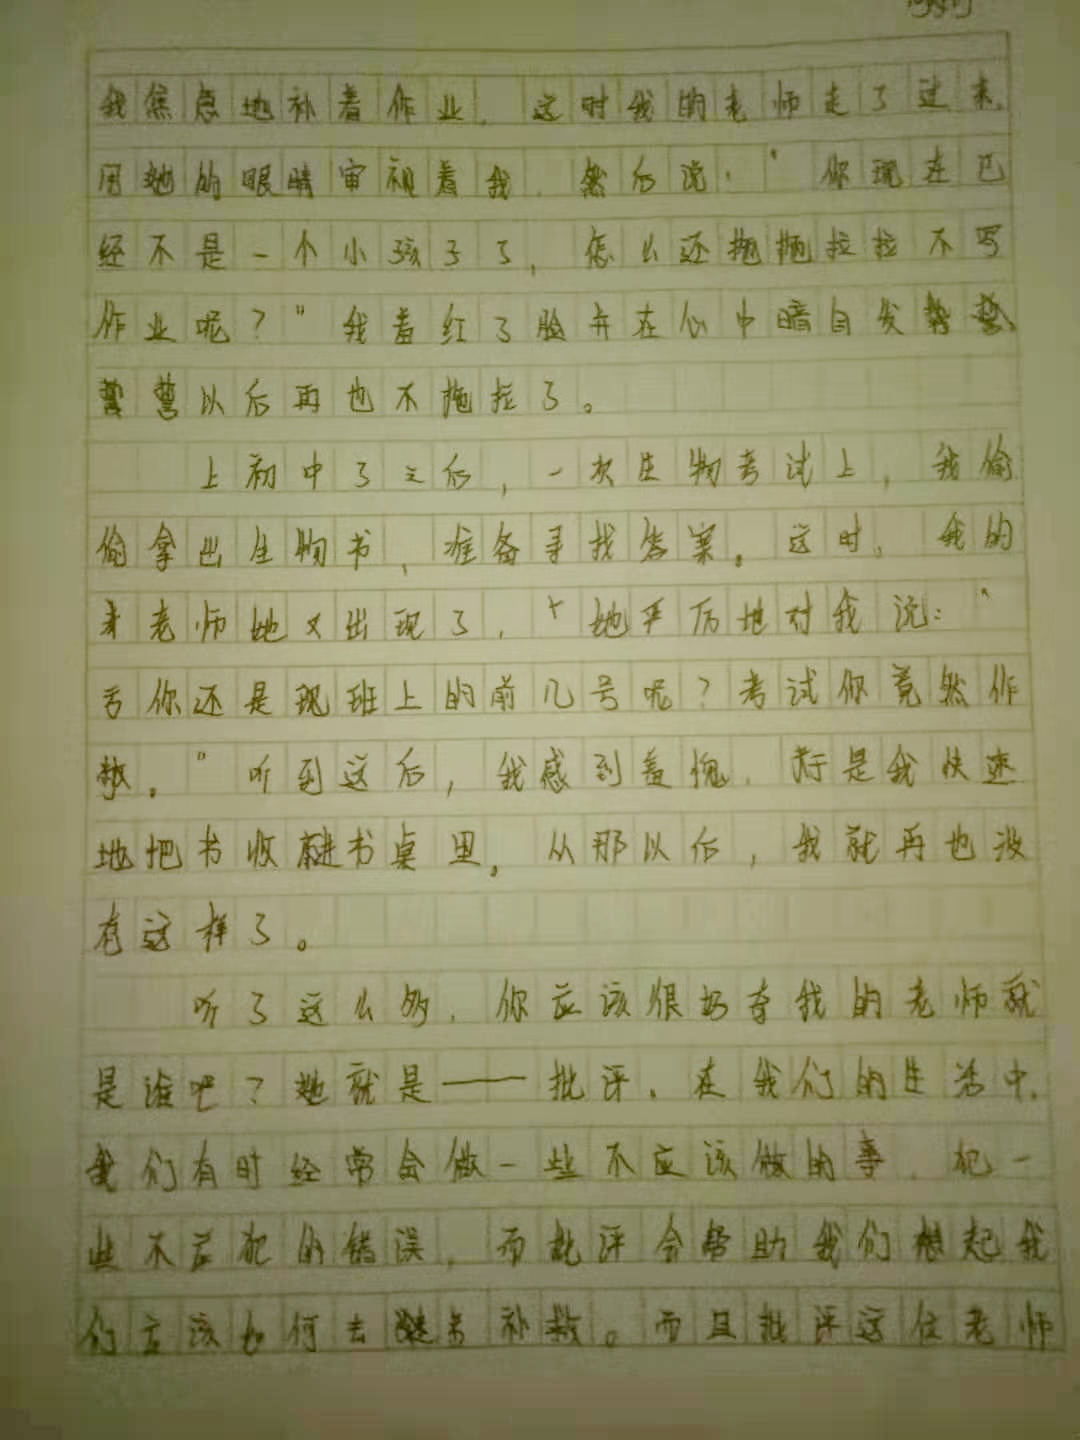 我焦急地补着作业，这时我的老师走了过来，
用她的眼睛审视着我，然后说：“你现在已
经不是一个小孩子了，怎么还拖拖拉拉不写
作业呢？”我羞红了脸并在心中暗自发誓
以后再也不拖拉了。
上初中了之后，一次生物考试上，我偷
偷拿出生物书，准备寻找答案。这时，我的
老师她又出现了，她严厉地对我说：“
你还是班上的前几号呢？考试你竟然作
弊。”听到这后，我感到羞愧，于是我快速
地把书收进书桌里。从那以后，我就再也没
有这样了。
听了这么多，你应该很好奇我的老师就
是谁吧？她就是——批评。在我们的生活中，
我们有时经常会做一些不应该做的事，犯一
些不应犯的错误，而批评会帮助我们想起我
们应该如何去补救。而且批评这位老师